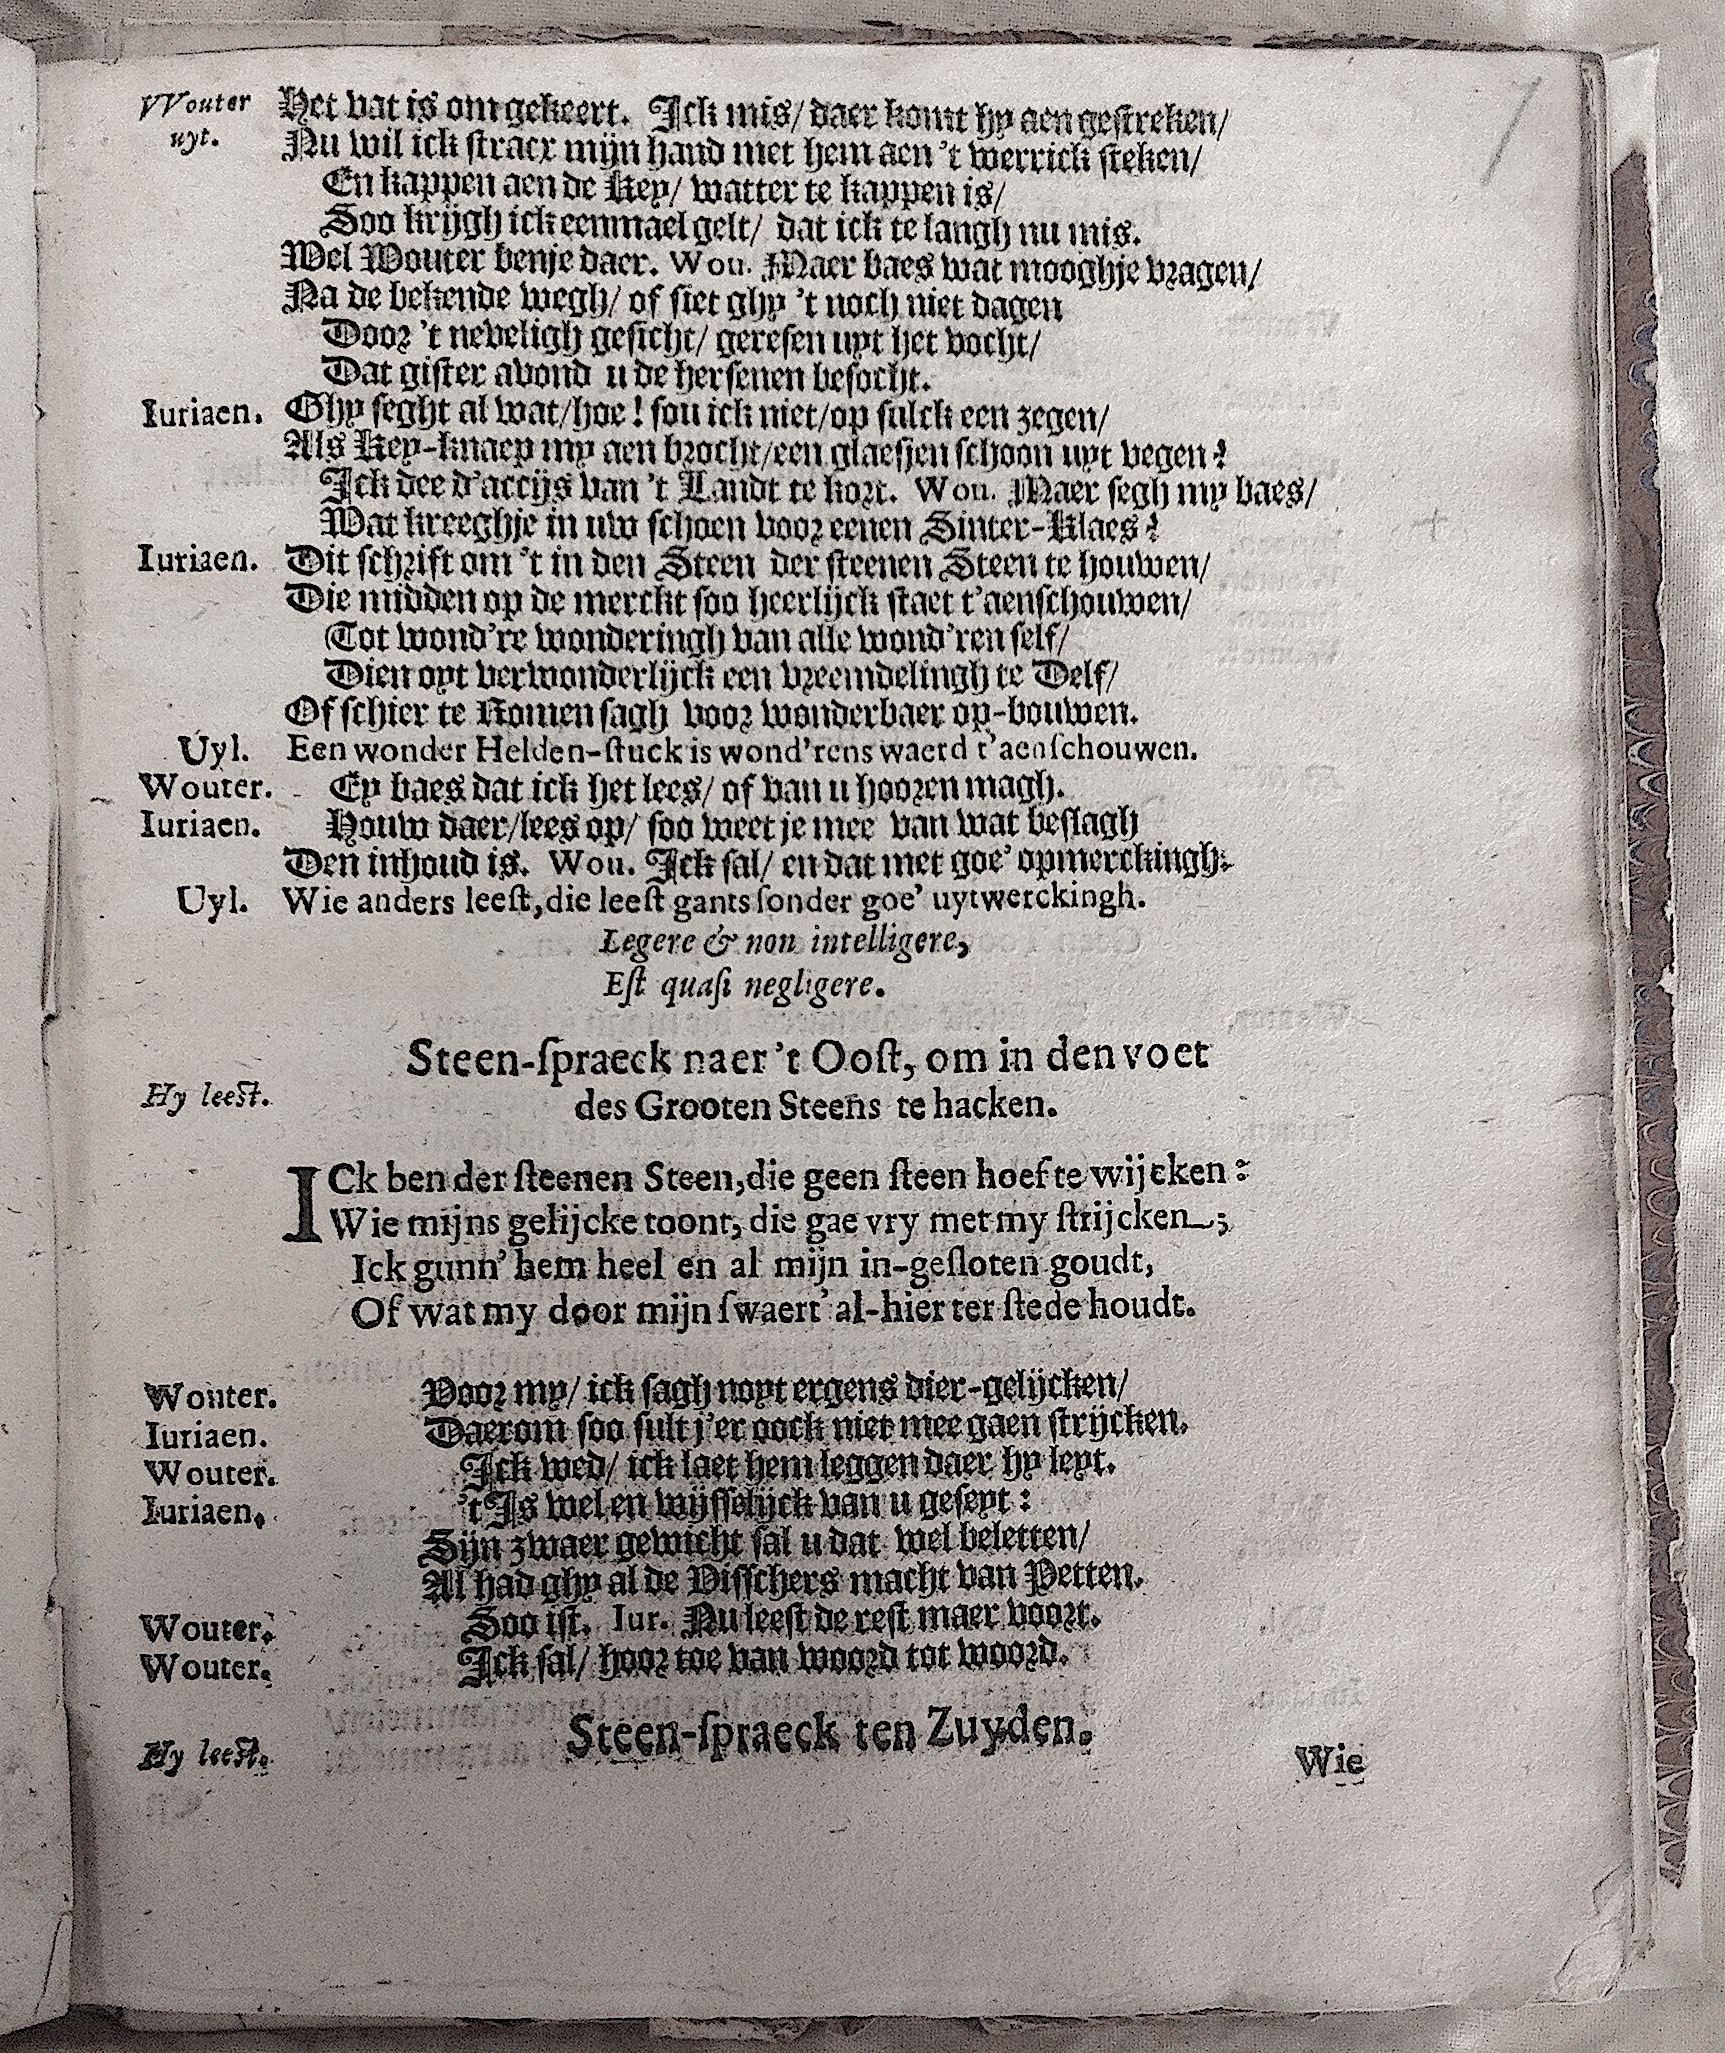 VVouter uyt. Het vat is om gekeert. Ick mis/ daer komt hy aen gestreken/
Nu wil ick stracx mijn hand met hem aen 't werrick steken/
En kappen aen de Key/ watter te kappen is/
Soo krijgh ick eenmael gelt/ dat ick te langh nu mis.
Wel Wouter benje daer. Wou. Maer baes wat mooghje vragen/
Na de bekende wegh/ of siet ghy 't noch niet dagen
Door 't neveligh gesicht/ geresen uyt het vocht/
Dat gister avond u de hersenen besocht.
Iuriaen. Ghy seght al wat/hoe! sou ick niet/op sulck een zegen/
Als Key-knaep my aen brocht/een glaesjen schoon uyt vegen?
Ick dee d'accijs van 't Landt te kort. Wou. Maer segh my baes/
Wat kreeghje in uw schoen voor eenen Sinter-Klaes?
Iuriaen. Dit schrift om 't in den Steen der steenen Steen te houwen/
Die midden op de merckt soo heerlijck staet t'aenschouwen/
Tot wond're wonderingh van alle wond'ren self/
Dien oyt verwonderlijck een vreemdelingh te Delf/
Of schier te Romen sagh voor wonderbaer op-bouwen.
Uyl. Een wonder Helden-stuck is wond'rens waerd t'aenschouwen.
Wouter. Ey baes dat ick het lees/ of van u hooren magh.
Iuriaen. Houw daer/lees op/ soo weet je mee van wat beslagh
Den inhoud is. Wou. Ick sal/ en dat met goe' opmerckingh.
Uyl. Wie anders leest, die leest gants sonder goe' uytwerckingh.
Legere & non intelligere,
Est quasi negligere.
Steen-spraeck naer 't Oost, om in den voet
Hy leest. des Grooten Steens te hacken.
ICk ben der steenen Steen, die geen steen hoef te wijcken:
Wie mijns gelijcke toont, die gae vry met my strijcken;
Ick gunn' hem heel en al mijn in-gesloten goudt,
Of wat my door mijn swaert' al-hier ter stede houdt.
Wouter. Voor my/ ick sagh noyt ergens dier-gelijcken/
Iuriaen. Daerom soo sult j'er oock niet mee gaen strijcken.
Wouter. Ick wed/ ick laet hem leggen daer hy leyt.
Iuriaen. 't Is wel en wijsselijck van u geseyt:
Sijn zwaer gewicht sal u dat wel beletten/
Al had ghy al de Visschers macht van Petten.
Wouter. Soo ist. Iur. Nu leest de rest maer voort.
Wouter. Ick sal/ hoor toe van woord tot woord.
Hy leest. Steen-spraeck ten Zuyden.
Wie